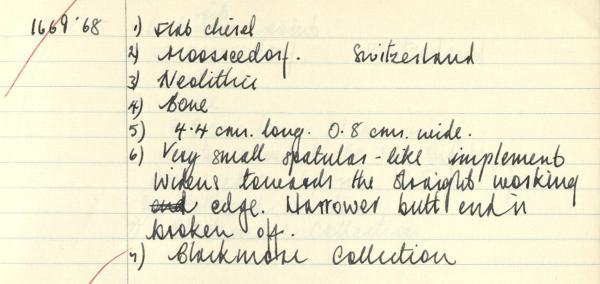 1669'68 1) Stab chisel
2) Moosseedorf. Switzerland
3) Neolithic
4) Bone
5) 4.4 cms. long. 0.8 cms. wide.
6) Very small spatular-like implement
widens towards the straight working
end edge. Narrower butt end is
broken off.
7) Blackmore Collection